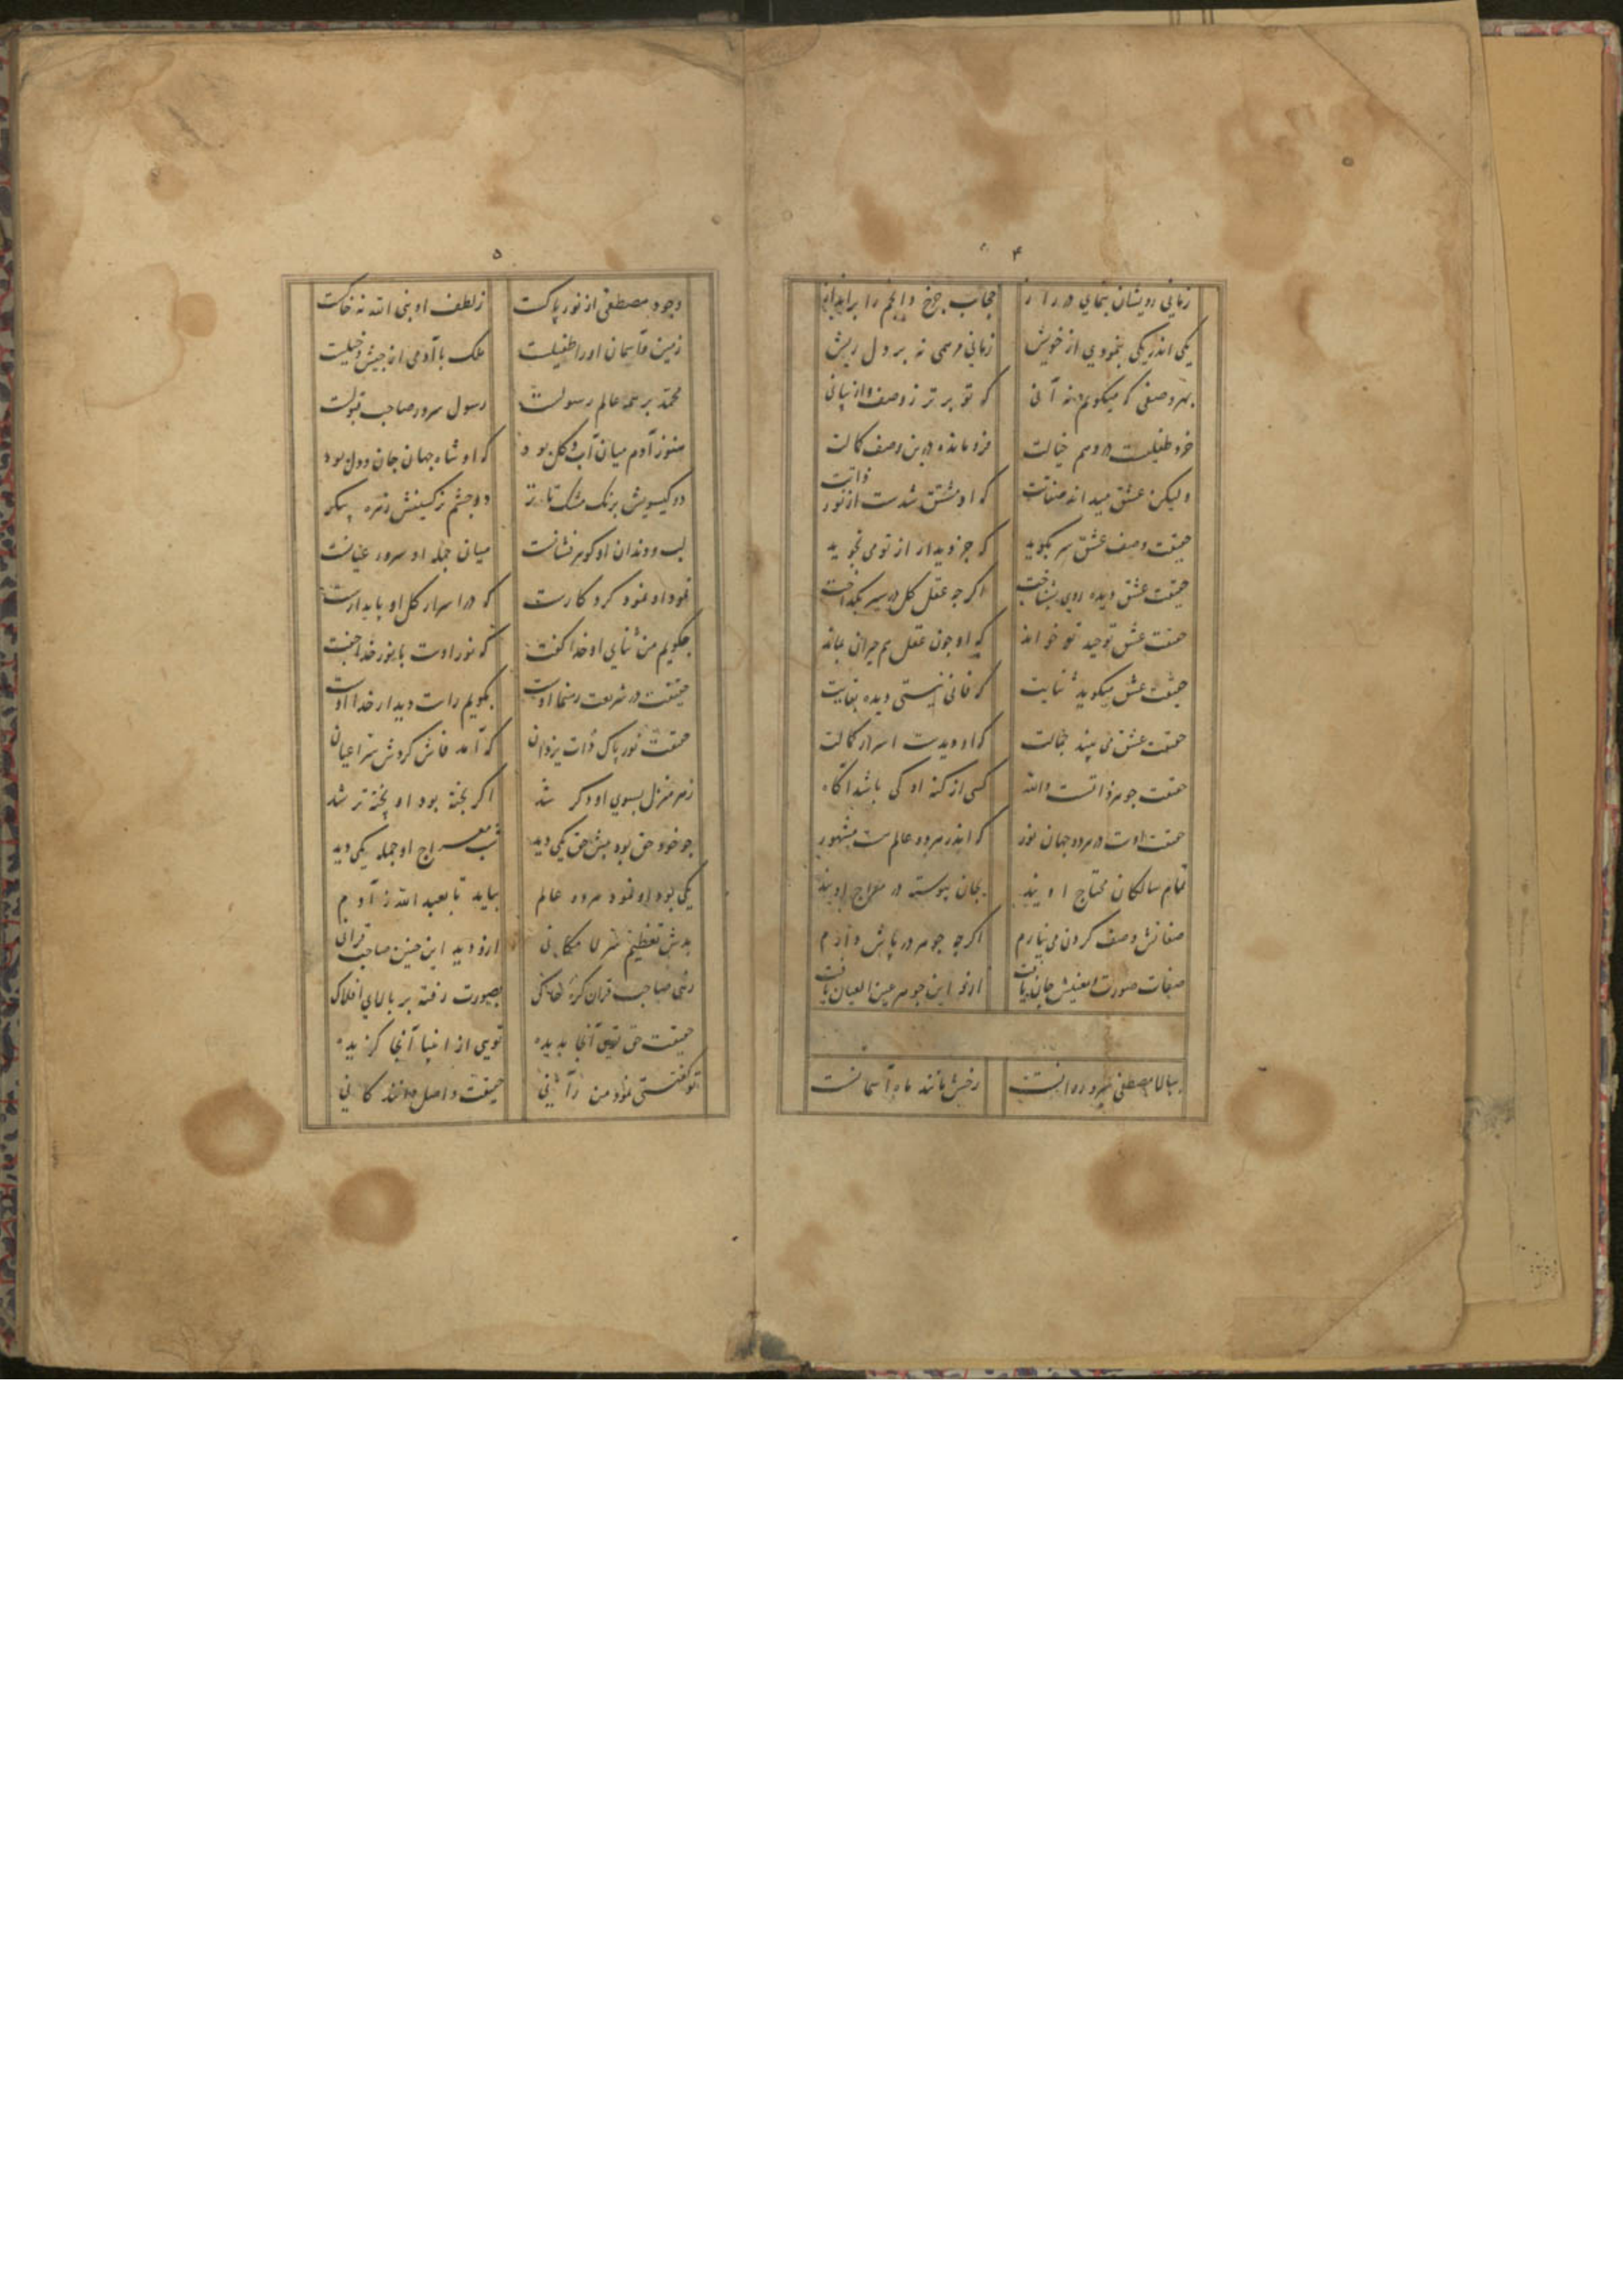 ۴
زمانی رویشان بنمایی در راز حجاب چرخ و انجم را براندار
یکی اندر یکی بنمودی از خویش زمانی مرهمی نه بر دل ریش
بهر وصفی که میکویم نه آنی که تو برتر ز وصف و از بیانی
خرد طفلیست در وهم خیالت فرو مانده درین وصف کمالت
ولیکن عشق میداند صفاتت که او مشتق شدست از نور ذاتت
حقیقت وصف عشق سر بکوید که جز دیدار از تو می نجوید
حقیقت عشق دیده روی بشناخت اکرچه عقل کل در سیر بکداخت
حقیقت عشق توحید تو خواند که او چون عقل هم حیران بماند
حقیقت عشق میکوید ثنایت که فانی نیستی دیده بقایت
حقیقت عشق می بیند جمالت که او دیدست اسرار کمالت
حقیقت جوهر ذاتست والله کسی از کنه او کی باشد آکاه
حقیقت اوست در هر دو جهان نور که اندر هر دو عالم هست مشهور
تمام سالکان محتاج اویند بجان پیوسته در معراج اویند
صفاتش وصف کردن می نیارم اکرچه جوهر در پاش دارم
صفات صورت و معنیش جان یافت ازو این جوهر عین العیان یافت
ببالا مصطفی سرو روانست رخش مانند ماه آسمانست
۵
وجود مصطفی از نور پاکست ز لطف او بنی الله نه خاکست
زمین و آسمان او را طفیلست ملک با آدمی از جیش و خیلست
محمد بر همه عالم رسولست رسول سرور صاحب قبولست
هنوز آدم میان آب و کل بود که او شاه جهان جان و دل بود
دو کیسویش برنک مشک تاتار دو چشم نرکسینش زهره پیکر
لب و دندان او کوهر نشانست میان جمله او سرور عیانست
نمود او نمود کردکارست که در اسرار کل او پایدارست
چکویم من ثنای او خدا کفت که نور اوست با نور خدا جفت
حقیقت در شریعت رهنما اوست بکویم راست دیدار خدا اوست
حقیقت نور پاک ذات یزدان که آمد فاش کردش سر اعیان
ز هر منزل بسوی او دکر شد اکر پخته بود او پخته تر شد
چو خود حق بود پیش حق یکی دید شب معراج او جمله یکی دید
یکی بود او نمود هر دو عالم بیاید تا بعبد الله ز آدم
بدش تعظیم سر لا مکانی ازو دید این چنین صاحب قرانی
زهی صاحب قران کره خاک بصورت رفته بر بالای افلاک
حقیقت حق توی آنجا بدیده تویی از انبیا آنجا کزیده
تو کفتستی نمود من رآنی حقیقت واصل کانی